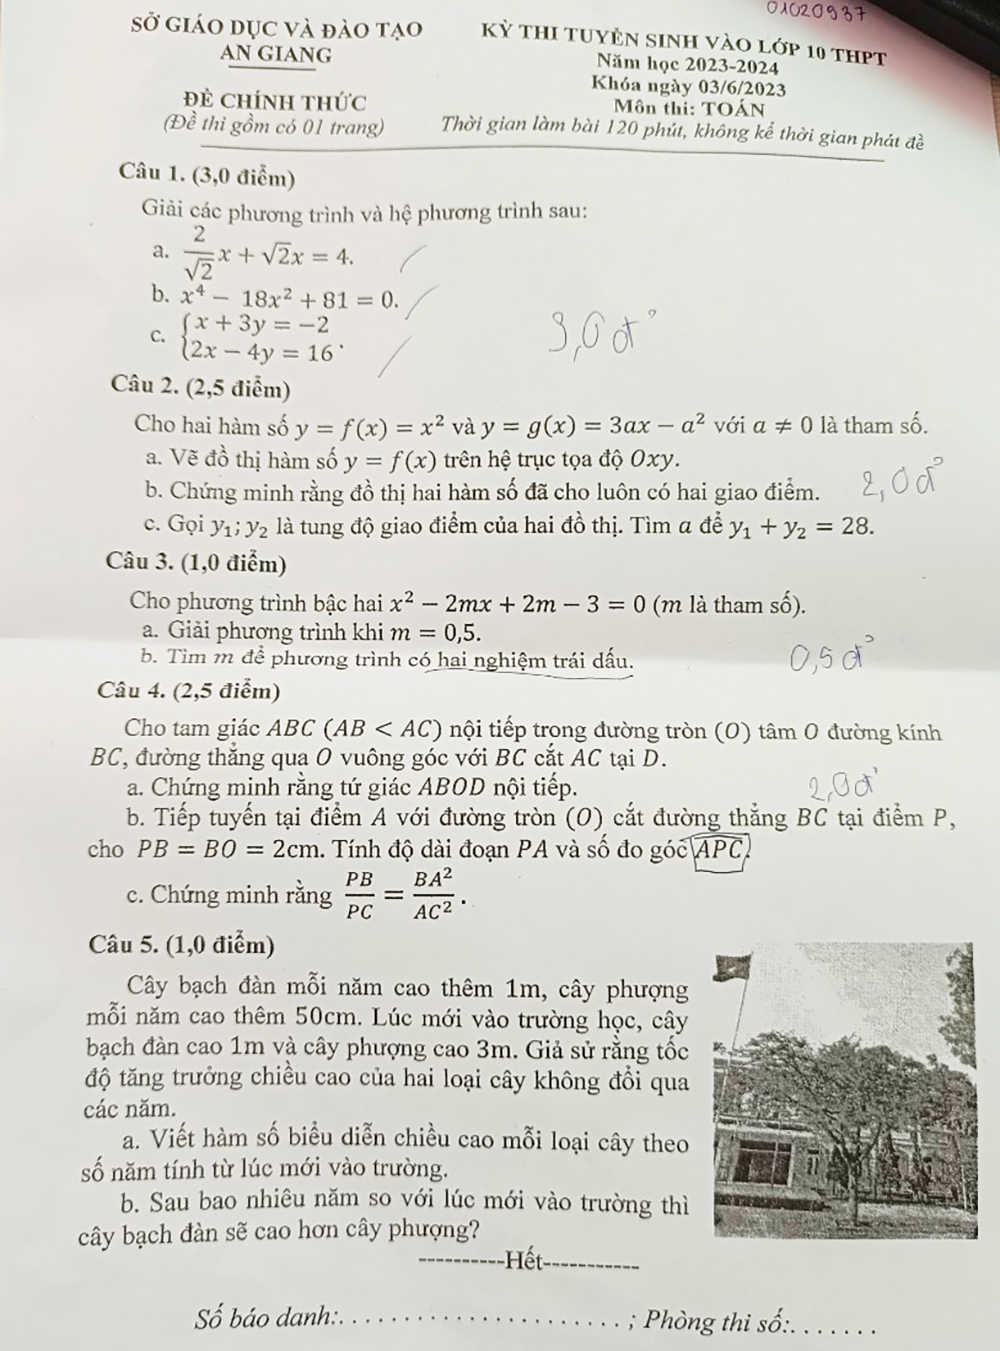 01020937
SỞ GIÁO DỤC VÀ ĐÀO TẠO
AN GIANG
ĐỀ CHÍNH THỨC
(Đề thi gồm có 01 trang)
KỲ THI TUYỂN SINH VÀO LỚP 10 THPT
Năm học 2023-2024
Khóa ngày 03/6/2023
Môn thi: TOÁN
Thời gian làm bài 120 phút, không kể thời gian phát đề
Câu 1. (3,0 điểm)
Giải các phương trình và hệ phương trình sau:
a. 2/√2 x + √2x = 4.
b. x⁴ − 18x² + 81 = 0.
c. { x + 3y = −2
2x − 4y = 16 .
3,0đ
Câu 2. (2,5 điểm)
Cho hai hàm số y = f(x) = x² và y = g(x) = 3ax − a² với a ≠ 0 là tham số.
a. Vẽ đồ thị hàm số y = f(x) trên hệ trục tọa độ Oxy.
b. Chứng minh rằng đồ thị hai hàm số đã cho luôn có hai giao điểm.
2,0đ
c. Gọi y₁; y₂ là tung độ giao điểm của hai đồ thị. Tìm a để y₁ + y₂ = 28.
Câu 3. (1,0 điểm)
Cho phương trình bậc hai x² − 2mx + 2m − 3 = 0 (m là tham số).
a. Giải phương trình khi m = 0,5.
b. Tìm m để phương trình có hai nghiệm trái dấu.
0,5đ
Câu 4. (2,5 điểm)
Cho tam giác ABC (AB < AC) nội tiếp trong đường tròn (O) tâm O đường kính
BC, đường thẳng qua O vuông góc với BC cắt AC tại D.
a. Chứng minh rằng tứ giác ABOD nội tiếp.
2,0đ
b. Tiếp tuyến tại điểm A với đường tròn (O) cắt đường thẳng BC tại điểm P,
cho PB = BO = 2cm. Tính độ dài đoạn PA và số đo góc APC.
c. Chứng minh rằng PB/PC = BA²/AC² .
Câu 5. (1,0 điểm)
Cây bạch đàn mỗi năm cao thêm 1m, cây phượng
mỗi năm cao thêm 50cm. Lúc mới vào trường học, cây
bạch đàn cao 1m và cây phượng cao 3m. Giả sử rằng tốc
độ tăng trưởng chiều cao của hai loại cây không đổi qua
các năm.
a. Viết hàm số biểu diễn chiều cao mỗi loại cây theo
số năm tính từ lúc mới vào trường.
b. Sau bao nhiêu năm so với lúc mới vào trường thì
cây bạch đàn sẽ cao hơn cây phượng?
----------Hết-----------
Số báo danh:. . . . . . . . . . . . . . . . . . . . . . ; Phòng thi số:. . . . . . .